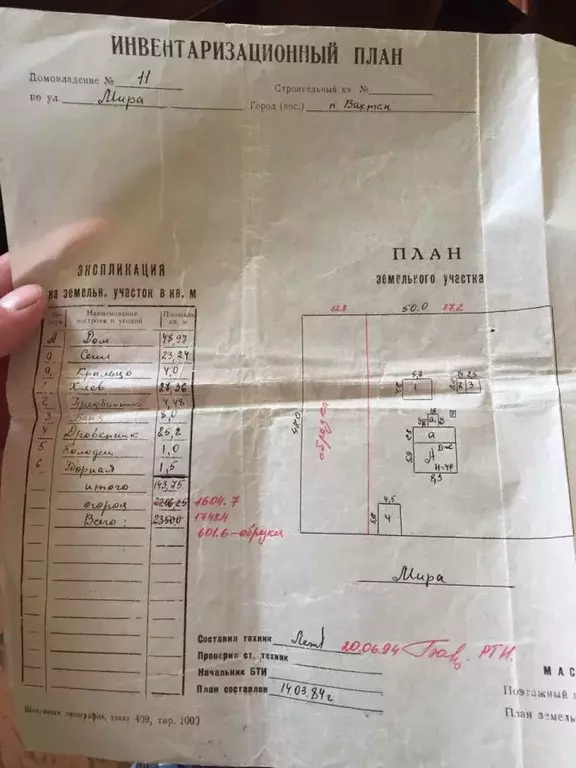 ИНВЕНТАРИЗАЦИОННЫЙ ПЛАН
Домовладение № 11
Строительный кв №
по ул. Мира
Город (пос.) п. Вахтан
ЭКСПЛИКАЦИЯ
на земельн. участок в кв. м
Наименование построек и угодий
Площадь кв. м
А Дом 48,97
а Сени 23,24
а₁ Крыльцо 4,0
1 Хлев
2 Предбанник 4,48
3 Баня 8,0
4 Дровенник 25,2
5 Колодец 1,0
6 Уборная 1,5
итого 143,75
огород 1604.7
Всего: 23500 1748.4
601.6 - обрезки
ПЛАН
земельного участка
12.8 50.0 37.2
обрезки
5,7
1
2 3
а
А
8,3
4,5
4
Мира
Составил техник
20.06.94 РТН.
Проверил ст. техник
Начальник БТИ
План составлен 14 03.84г
МАС
Поэтажный п
План земель
Шахунская типография, заказ 409, тир. 1000